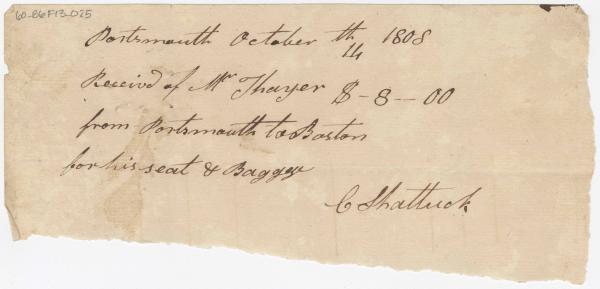 60-86F13-D25
Portsmouth October 14th 1808
Receivd of Mr Thayer $-8-00
from Portsmouth to Boston
for his seat & Baggge
C Shattuck